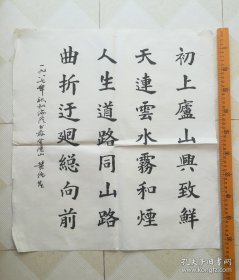 初上廬山興致鮮
天連雲水霧和煙
人生道路同山路
曲折迂廻總向前
一九八七年